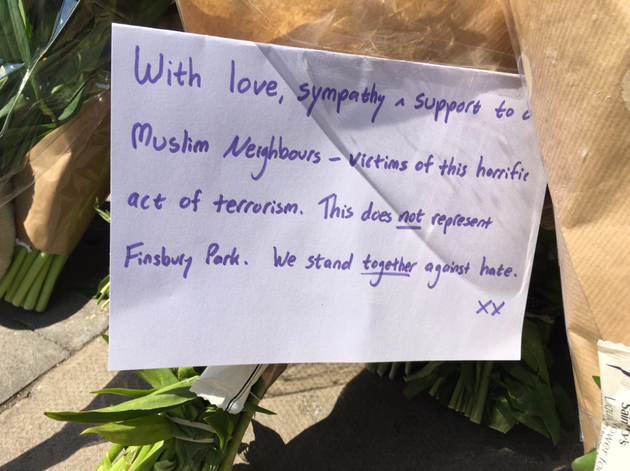 With love, sympathy ^ support to
Muslim Neighbours - victims of this horrific
act of terrorism. This does not represent
Finsbury Park. We stand together against hate.
xx